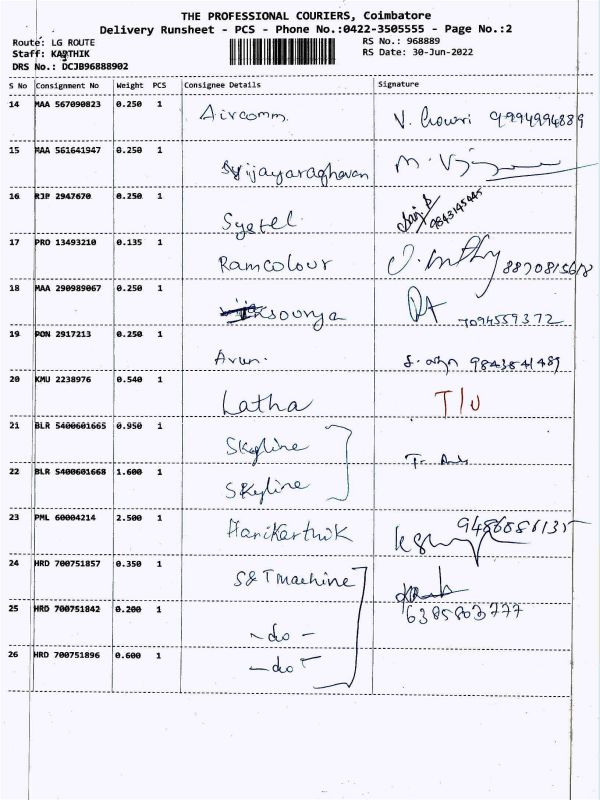 THE PROFESSIONAL COURIERS, Coimbatore
Delivery Runsheet - PCS - Phone No.:0422-3505555 - Page No.:2
Route: LG ROUTE
RS No.: 968889
Staff: KARTHIK
RS Date: 30-Jun-2022
DRS No.: DCJB96888902
S No Consignment No Weight PCS Consignee Details Signature
14 MAA 567090823 0.250 1 Aircomm. V. Gowri 9994994889
15 MAA 561641947 0.250 1 Vijayaraghavan M.
16 RJP 2947670 0.250 1 Syetel. 9843145445
17 PRO 13493210 0.135 1 Ramcolour 8870815618
18 MAA 290989067 0.250 1 Sourya 7094559372
19 PON 2917213 0.250 1 Arun. 9843841489
20 KMU 2238976 0.540 1 Latha T/U
21 BLR 5400601665 0.950 1 Skyline
22 BLR 5400601668 1.600 1 Skyline
23 PML 60004214 2.500 1 Harikarthik 9486886135
24 HRD 700751857 0.350 1 S&T machine
25 HRD 700751842 0.200 1 -do- 6385803777
26 HRD 700751896 0.600 1 -do-